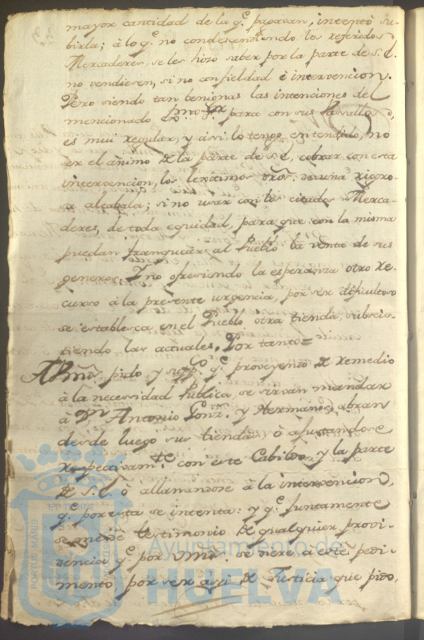 mayor cantidad de la q.e pagavan, intentó su-
birla; à lo q.e no condescendiendo los referidos
Mercaderes, se les hizo saber por la parte de S. E.
no vendiesen, si no con fieldad è intervencion.
Pero siendo tan benignas las intenciones del
mencionado Ex.mo S.or para con sus Vasallos,
es mui regular, y asi lo tengo entendido, no
ser el animo de la parte de S. E. cobrar con esta
intervencion, los legitimos dros. de una rigoro-
sa alcabala; si no usar con los citados Merca-
deres, de toda equidad, para que con la misma
puedan franquear al Pueblo la venta de sus
generos; Y no ofreciendo la esperanza otro re-
curso à la presente urgencia, por ser dificultoso
se establesca en el Pueblo otra tienda, subsis-
tiendo las actuales. Por tanto =
A Vmds. pido y supp.co q.e proveyendo de remedio
à la necesidad Publica, se sirvan mandar
à D.n Antonio Gonz. y Hermanos, abran
desde luego sus tiendas, ò ajustandose
respectivam.te con este Cabildo, y la parte
de S. E. ò allanandose à la intervencion,
q.e por esta se intenta: y q.e juntamente
se me de testimonio de qualquier provi-
dencia q.e por Vmds. se diere à este pedi-
mento por ser asi de Justicia que pido,
Ayuntamiento de
HUELVA